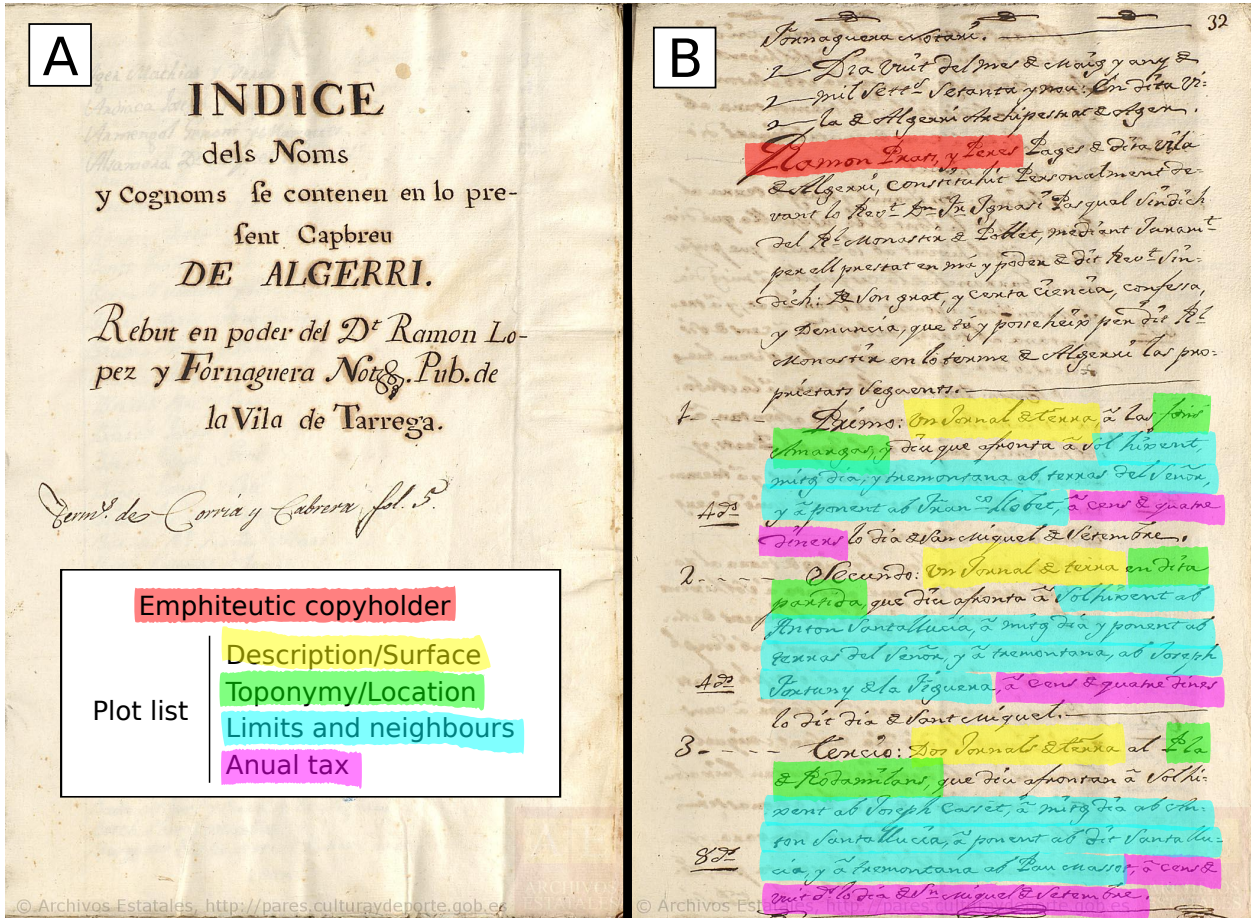 A
INDICE
dels Noms
y Cognoms se contenen en lo pre-
sent Capbreu
DE ALGERRI.
Rebut en poder del Dt Ramon Lo-
pez y Fornaguera Not. Pub. de
la Vila de Tarrega.
Term.s de Corria y Cabrera fol. 5.
Emphiteutic copyholder
Plot list
Description/Surface
Toponymy/Location
Limits and neighbours
Anual tax
© Archivos Estatales, http://pares.culturaydeporte.gob.es
B
32
Fornaguera Notari.
Dia vuit del mes de Maig y any de
mil Sett.s Setanta y nou: En dita Vi-
la de Algerri Archiprestat de Ager.
Ramon Prats, y Perés Pages de dita vila
de Algerri, constituhit Personalment de-
vant lo Revt. Dn Fr. Ignasi Pasqual Sindich
del Rl. Monastir de Poblet, mediant Juramt
per ell prestat en má y poder de dit Revt. Sin-
dich: De Son grat, y certa ciencia, confessa,
y Denuncia, que té y posseheix per dit Rl.
Monastir en lo terme de Algerri las pro-
prietats Seguents.
1 Primo: Un Jornal de terra, á las fons
Amargas, y diu que afronta á Sol hixent,
mitg dia, y tremontana ab terras del Señor,
y á ponent ab Fran.co Llobet, á cens de quatre
4 ds
diners lo dia de San Miquel de Setembre.
2 Secundo: Un Jornal de terra en dita
partida, que diu afronta á Solhixent ab
Anton Santallucia, á mitg dia y ponent ab
terras del Señor, y á tremontana, ab Joseph
4 ds
Fortuny de la Figuera, á cens de quatre diners
lo dit dia de Sant Miquel.
3 Tercio: Dos Jornals de terra al Pla
de Rodamilans, que diu afrontan á Solhi-
xent ab Joseph Casset, á mitg dia ab An-
ton Santallucia, á ponent ab dit Santallu-
8 ds
cia, y á tremontana ab Pau Massot, á cens de
vuit ds lo dia de Sn. Miquel de Setembre.
© Archivos Estatales, http://pares.culturaydeporte.gob.es